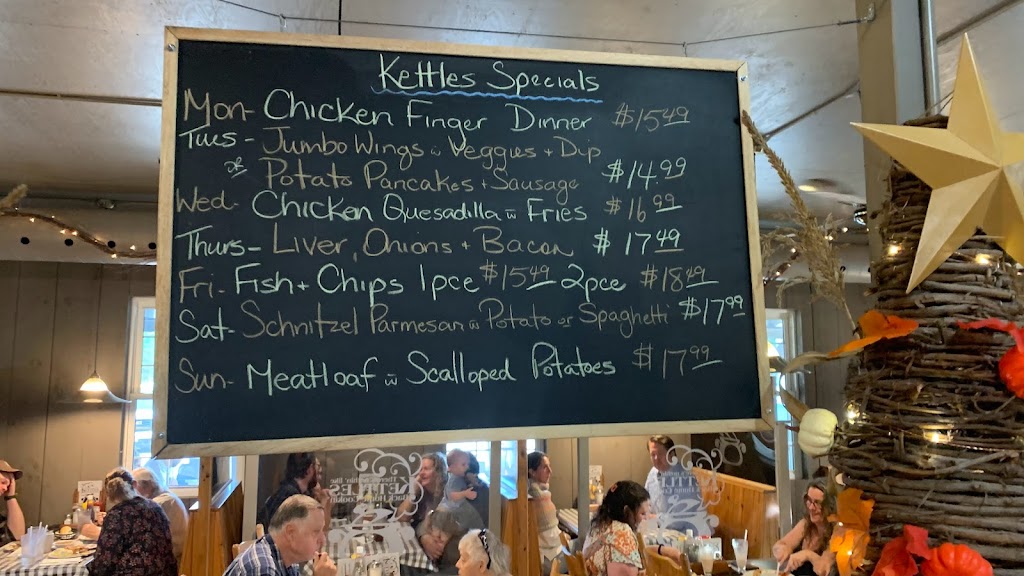 Kettles Specials
Mon- Chicken Finger Dinner $15.49
Tues - Jumbo Wings w Veggies + Dip
or Potato Pancakes + Sausage $14.99
Wed- Chicken Quesadilla w Fries $16.99
Thurs- Liver, Onions + Bacon $17.49
Fri- Fish + Chips 1pce $15.49 2pce $18.49
Sat- Schnitzel Parmesan w Potato or Spaghetti $17.99
Sun- Meatloaf w Scalloped Potatoes $17.99